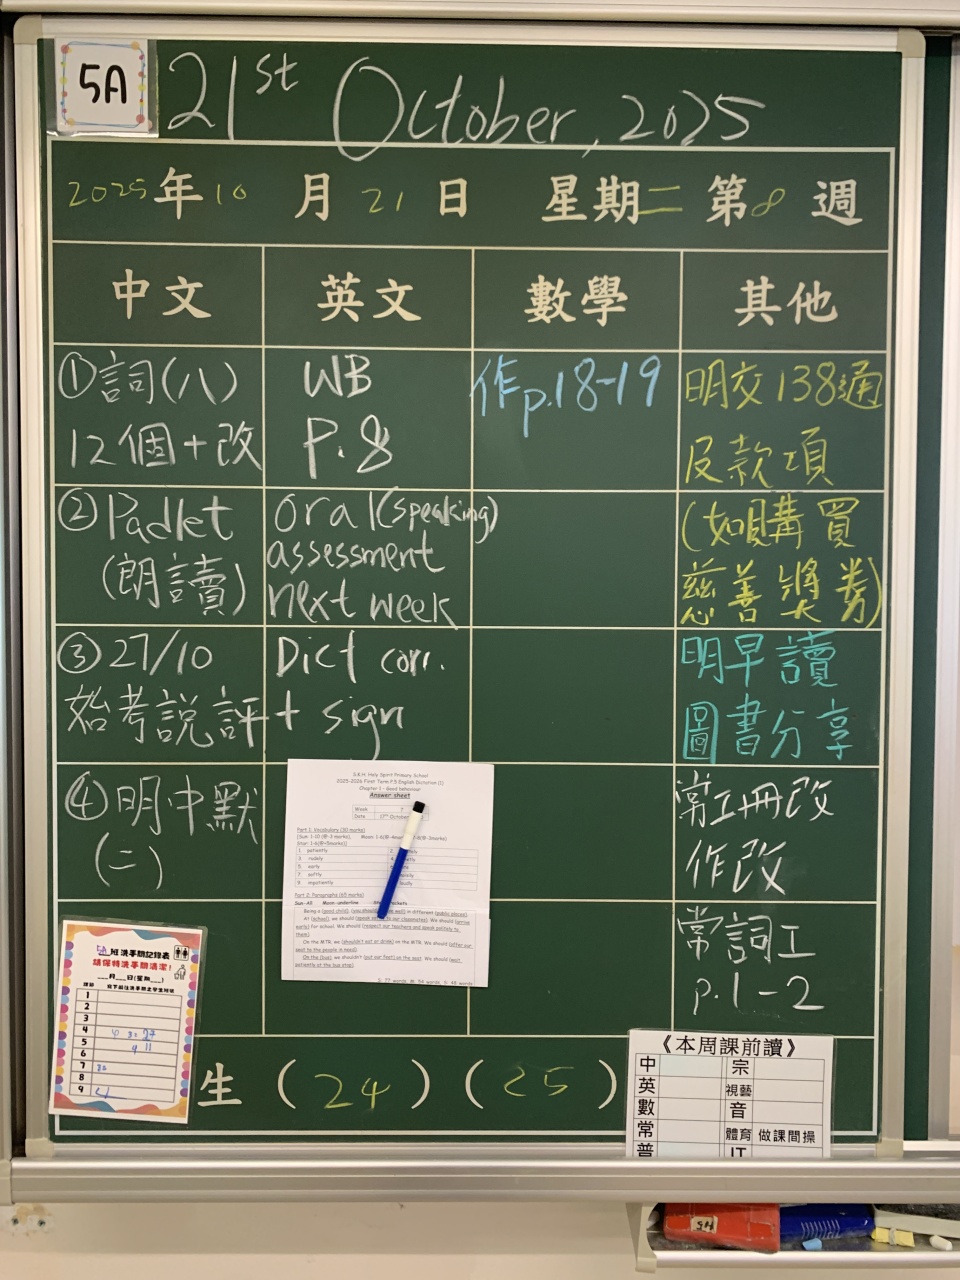 5A
21st October, 2025
2025年10月21日 星期二 第8週
中文 英文 數學 其他
①詞(八)
12個+改
②Padlet
(朗讀)
③27/10
始考說評
④明中默
(二)
WB
P.8
oral(speaking)
assessment
next week
Dict corr.
+ sign
作p.18-19
明交138通
及款項
(如購買
慈善獎券)
明早讀
圖書分享
常工冊改
作改
常詞工
p.1-2
S.K.H. Holy Spirit Primary School
2025-2026 First Term P.5 English Dictation (1)
Chapter 1 - Good behaviour
Answer sheet
Week
Date 17th October
Part 1: Vocabulary (30 marks)
1. patiently
3. rudely
5. early
7. softly
9. impatiently
Part 2: Paragraphs (65 marks)
Being a (good child), (you should well) in different (public places).
At (school), we should (speak to our classmates). We should (arrive
early) for school. We should (respect our teachers and speak politely to
them).
On the MTR, we (shouldn't eat or drink) on the MTR. We should (offer our
seat to the people in need).
On the (bus), we shouldn't (put our feet) on the seat. We should (wait
patiently at the bus stop).
5A班洗手間記錄表
請保持洗手間清潔!
月 日(星期 )
1
2
3
4
5
6
7
8
9
生 (24)(25)
《本周課前讀》
中 宗
英 視藝
數 音
常 體育 做課間操
普 IT